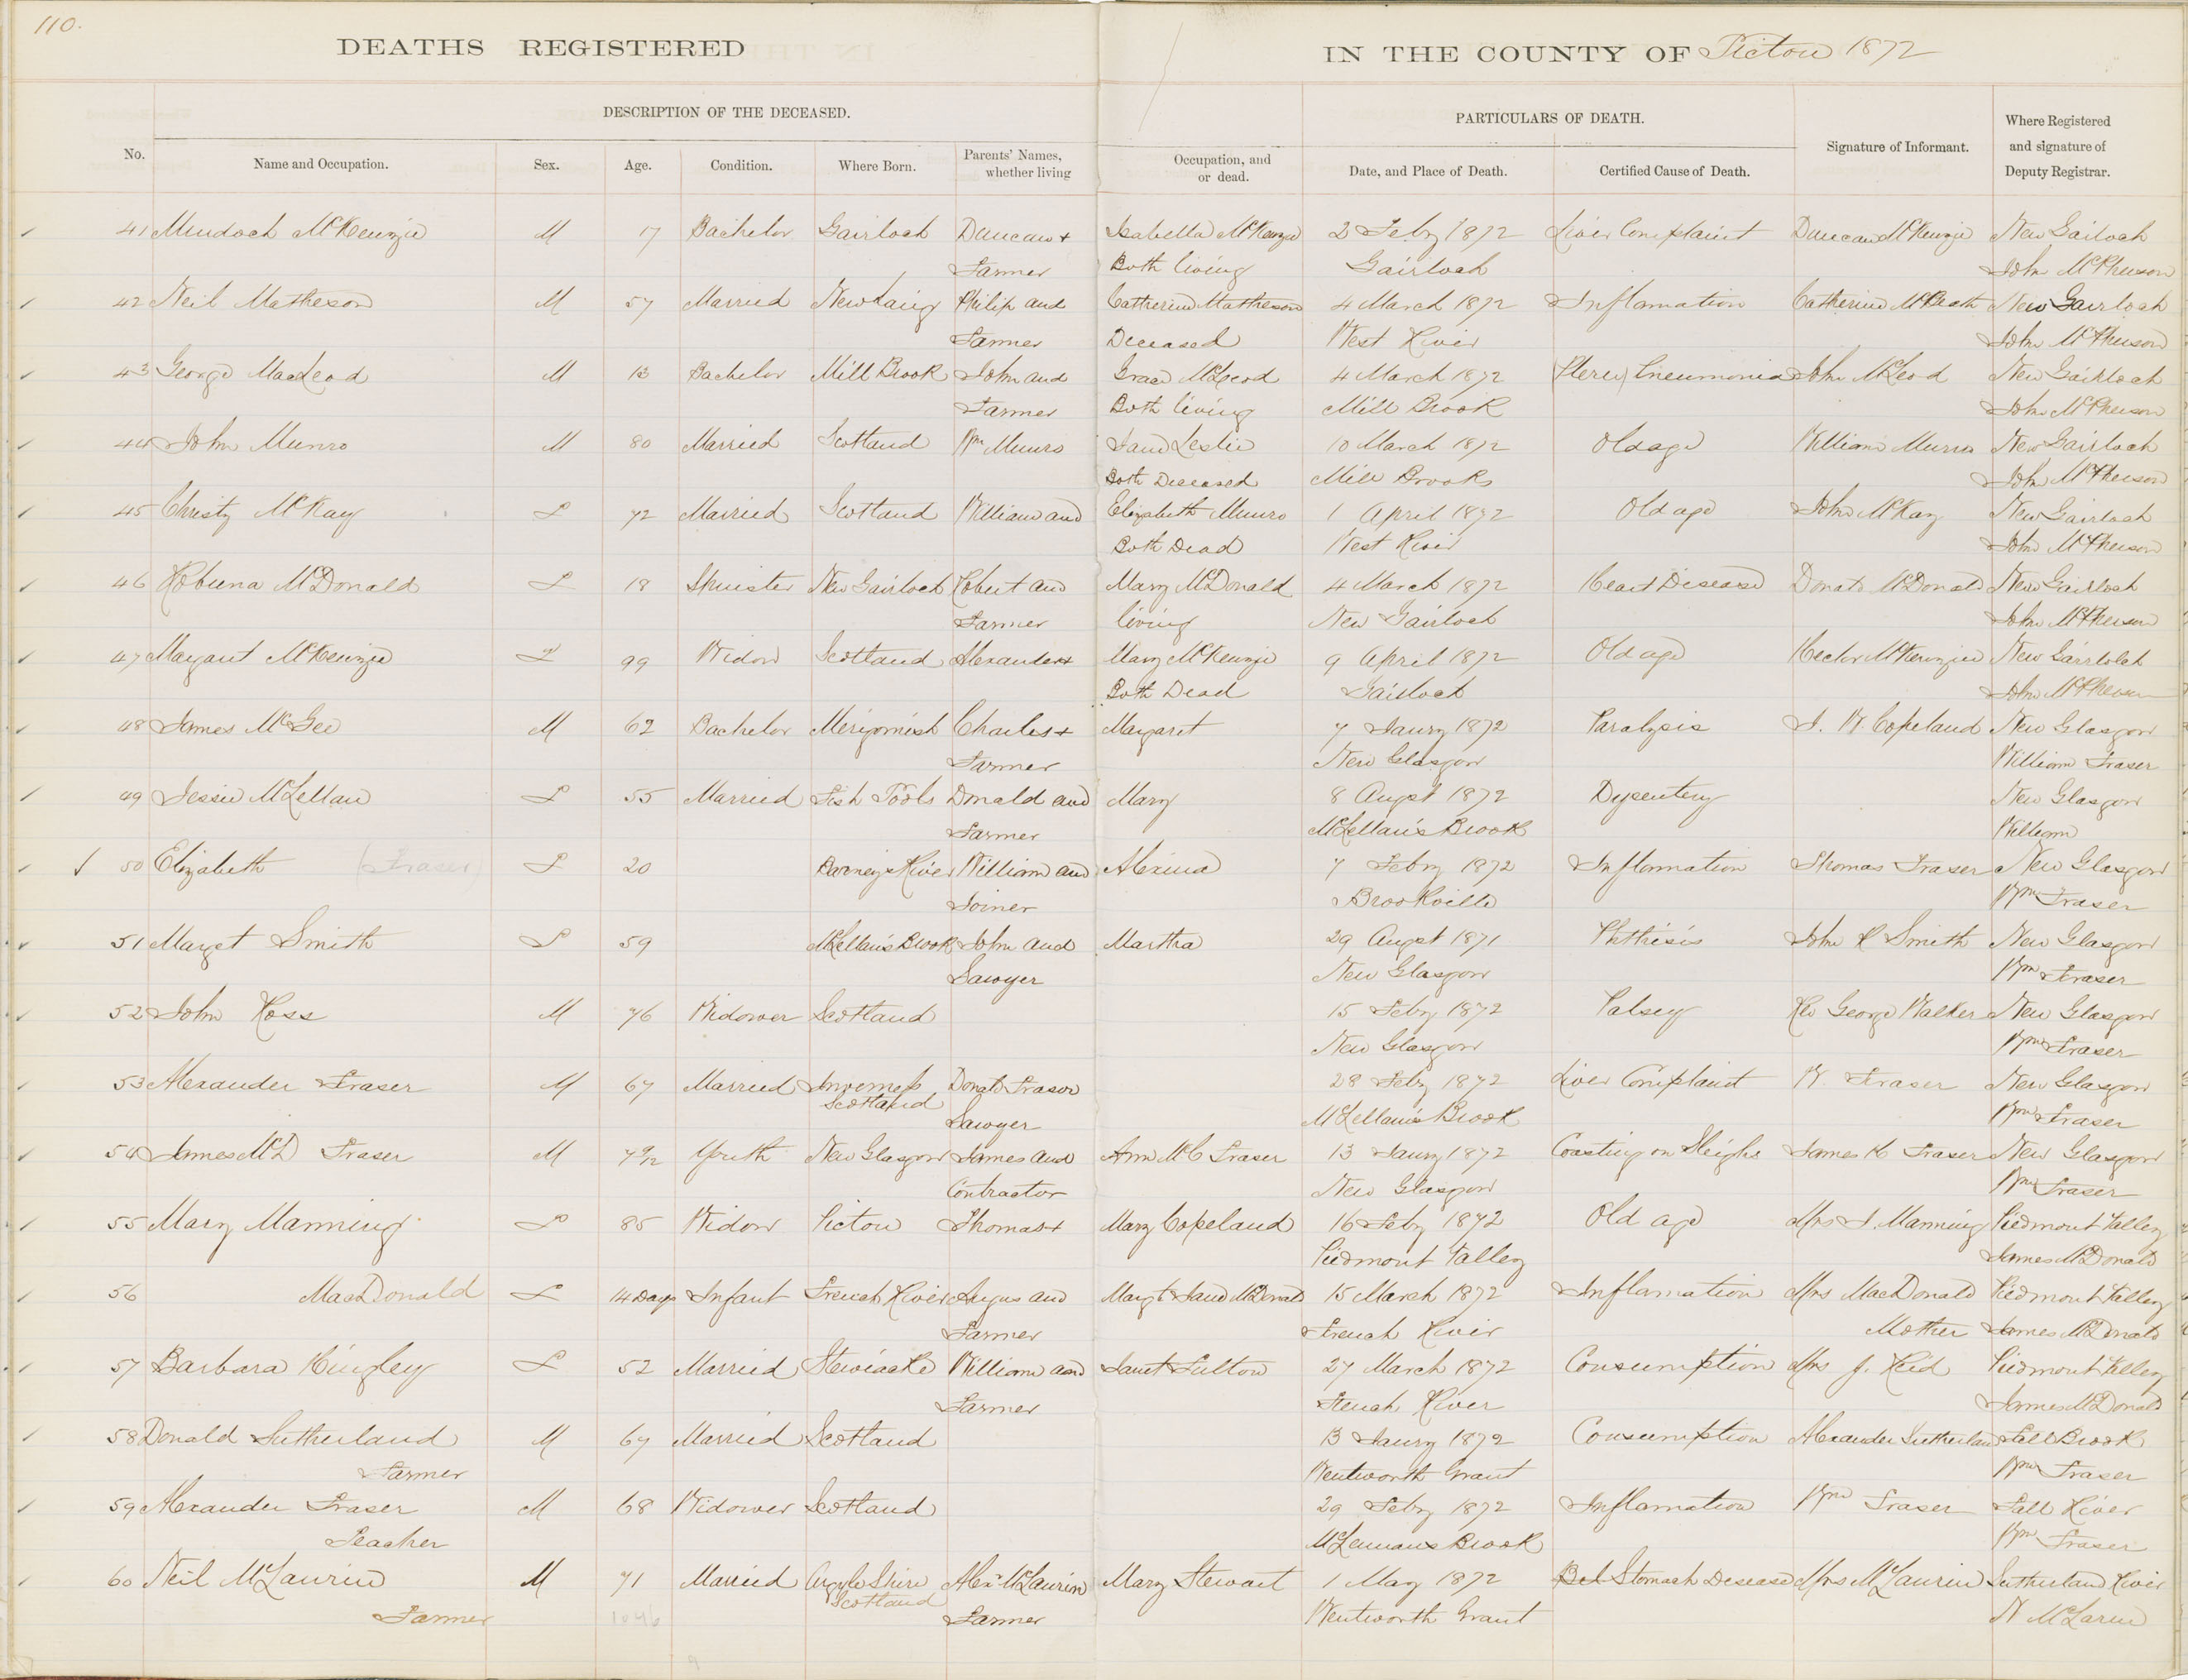 110.
DEATHS REGISTERED IN THE COUNTY OF Pictou 1872
DESCRIPTION OF THE DECEASED. PARTICULARS OF DEATH. Signature of Informant. Where Registered and signature of Deputy Registrar.
No. Name and Occupation. Sex. Age. Condition. Where Born. Parents' Names, whether living Occupation, and or dead. Date, and Place of Death. Certified Cause of Death.
41 Murdoch McKenzie M 17 Bachelor Gairloch Duncan + Isabella McKenzie 2 Feby 1872 Liver Complaint Duncan McKenzie New Gairloch
Farmer Both living Gairloch John McPherson
42 Neil Matheson M 57 Married New Lairg Philip and Catherine Matheson 4 March 1872 Inflamation Catherine McBeath New Gairloch
Farmer Deceased West River John McPherson
43 George MacLeod M 13 Bachelor Mill Brook John and Grace McLeod 4 March 1872 Pneumonia John McLeod New Gairloch
Farmer Both living Mill Brook John McPherson
44 John Munro M 80 Married Scotland Wm Munro Jane Leslie 10 March 1872 Old age William Munro New Gairloch
Both Deceased Mill Brooks John McPherson
45 Christy McKay F 72 Married Scotland William and Elizabeth Munro 1 April 1872 Old age John McKay New Gairloch
Both Dead West River John McPherson
46 Robiena McDonald F 18 Spinister New Gairloch Robert and Mary McDonald 4 March 1872 Heart Disease Donald McDonald New Gairloch
Farmer living New Gairloch John McPherson
47 Margaret McKenzie F 99 Widow Scotland Alexander + Mary McKenzie 9 April 1872 Old age Hector McKenzie New Gairloch
Both Dead Gairloch John McPherson
48 James McGee M 62 Bachelor Merigomish Charles + Margaret 7 Jaury 1872 Paralysis J. W. Copeland New Glasgow
Farmer New Glasgow William Fraser
49 Jessie McLellan F 55 Married Fish Pools Donald and Mary 8 Augst 1872 Dysentery New Glasgow
Farmer McLellan's Brook William
50 Elizabeth (Fraser) F 20 Barneys River William and Alexina 7 Feby 1872 Inflamation Thomas Fraser New Glasgow
Joiner Brookville Wm Fraser
51 Marget Smith F 59 McLellan's Brook John and Martha 29 Augst 1871 Phthisis John R Smith New Glasgow
Sawyer New Glasgow Wm Fraser
52 John Ross M 76 Widower Scotland 15 Feby 1872 Palsey Rev George Walker New Glasgow
New Glasgow Wm Fraser
53 Alexander Fraser M 67 Married Inverness Donald Fraser 28 Feby 1872 Liver Complaint W. Fraser New Glasgow
Scotland Sawyer McLellan's Brook Wm Fraser
54 James McD Fraser M 7 9/12 Youth New Glasgow James and Ann McC Fraser 13 Jaury 1872 Coasting on Sleighs James K Fraser New Glasgow
Contractor New Glasgow Wm Fraser
55 Mary Manning F 85 Widow Pictou Thomas + Mary Copeland 16 Feby 1872 Old age Mrs J. Manning Piedmont Valley
Piedmont Valley James McDonald
56 MacDonald F 14 Days Infant French River Angus and Margt Jane McDonald 15 March 1872 Inflamation Mrs MacDonald Piedmont Valley
Farmer French River Mother James McDonald
57 Barbara Kingley F 52 Married Stewiacke William and Janet Fulton 27 March 1872 Consumption Mrs J. Reid Piedmont Valley
Farmer French River James McDonald
58 Donald Sutherland M 67 Married Scotland 13 Jaury 1872 Consumption Alexander Sutherland Fall Brook
Farmer Wentworth Grant Wm Fraser
59 Alexander Fraser M 68 Widower Scotland 29 Feby 1872 Inflamation Wm Fraser Fall River
Teacher McLennans Brook Wm Fraser
60 Neil McLaurin M 71 Married Argyle Shire Alexr McLaurin Mary Stewart 1 May 1872 Stomach Disease Mrs McLaurin Sutherland River
Farmer 1046 Scotland Farmer Wentworth Grant N McLaren